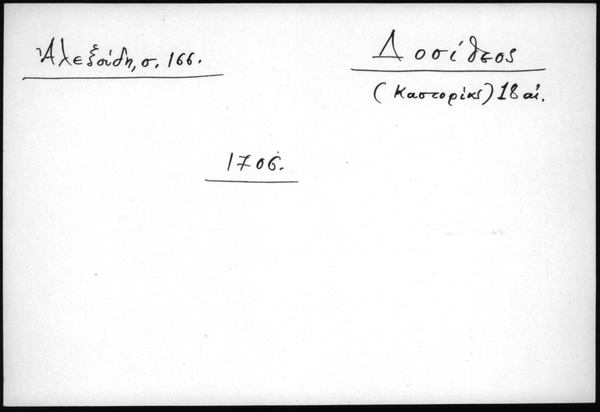 Ἀλεξούδη, σ. 166.
Δοσίθεος
(Καστορίας) 18 αἰ.
1706.